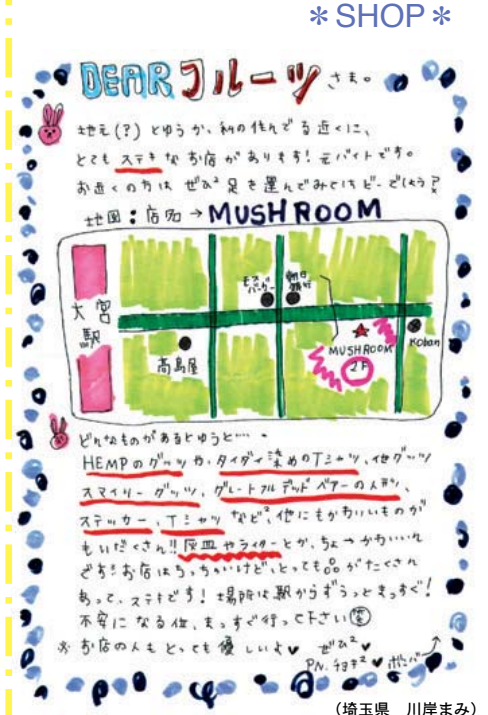 ＊SHOP＊
DEARフルーツさま。
地元(?)とゆうか、私の住んでる近くに、
とてもステキなお店があります!元バイトです。
お近くの方はぜひ²足を運んでみてはどーでしょう?
地図:店名→MUSHROOM
大宮駅
モスバーガー
朝日銀行
高島屋
MUSHROOM
2F
Koban
どんなものがあるとゆうと…
HEMPのグッツや、タイダイ染めのTシャツ、他グッツ
スマイリーグッツ、グレートフルデッドベアーの人形、
ステッカー、Tシャツなど²、他にもかわいいものが
もいだくさん!!灰皿やライターとか、ちょーかわいいん
です!お店はちっちゃいけど、とっても
がたくさん
あって、ステキです!場所は駅からずうっとまっすぐ!
不安になる位、まっすぐ行って下さい笑
※お店の人もとっても優しいよ♥ ぜひ²♥
P.N.
(埼玉県　川岸まみ)